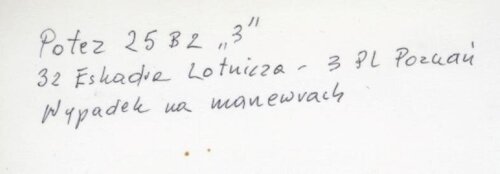 Potez 25 B2 „3”
32 Eskadra Lotnicza - 3 PL Poznań
Wypadek na manewrach